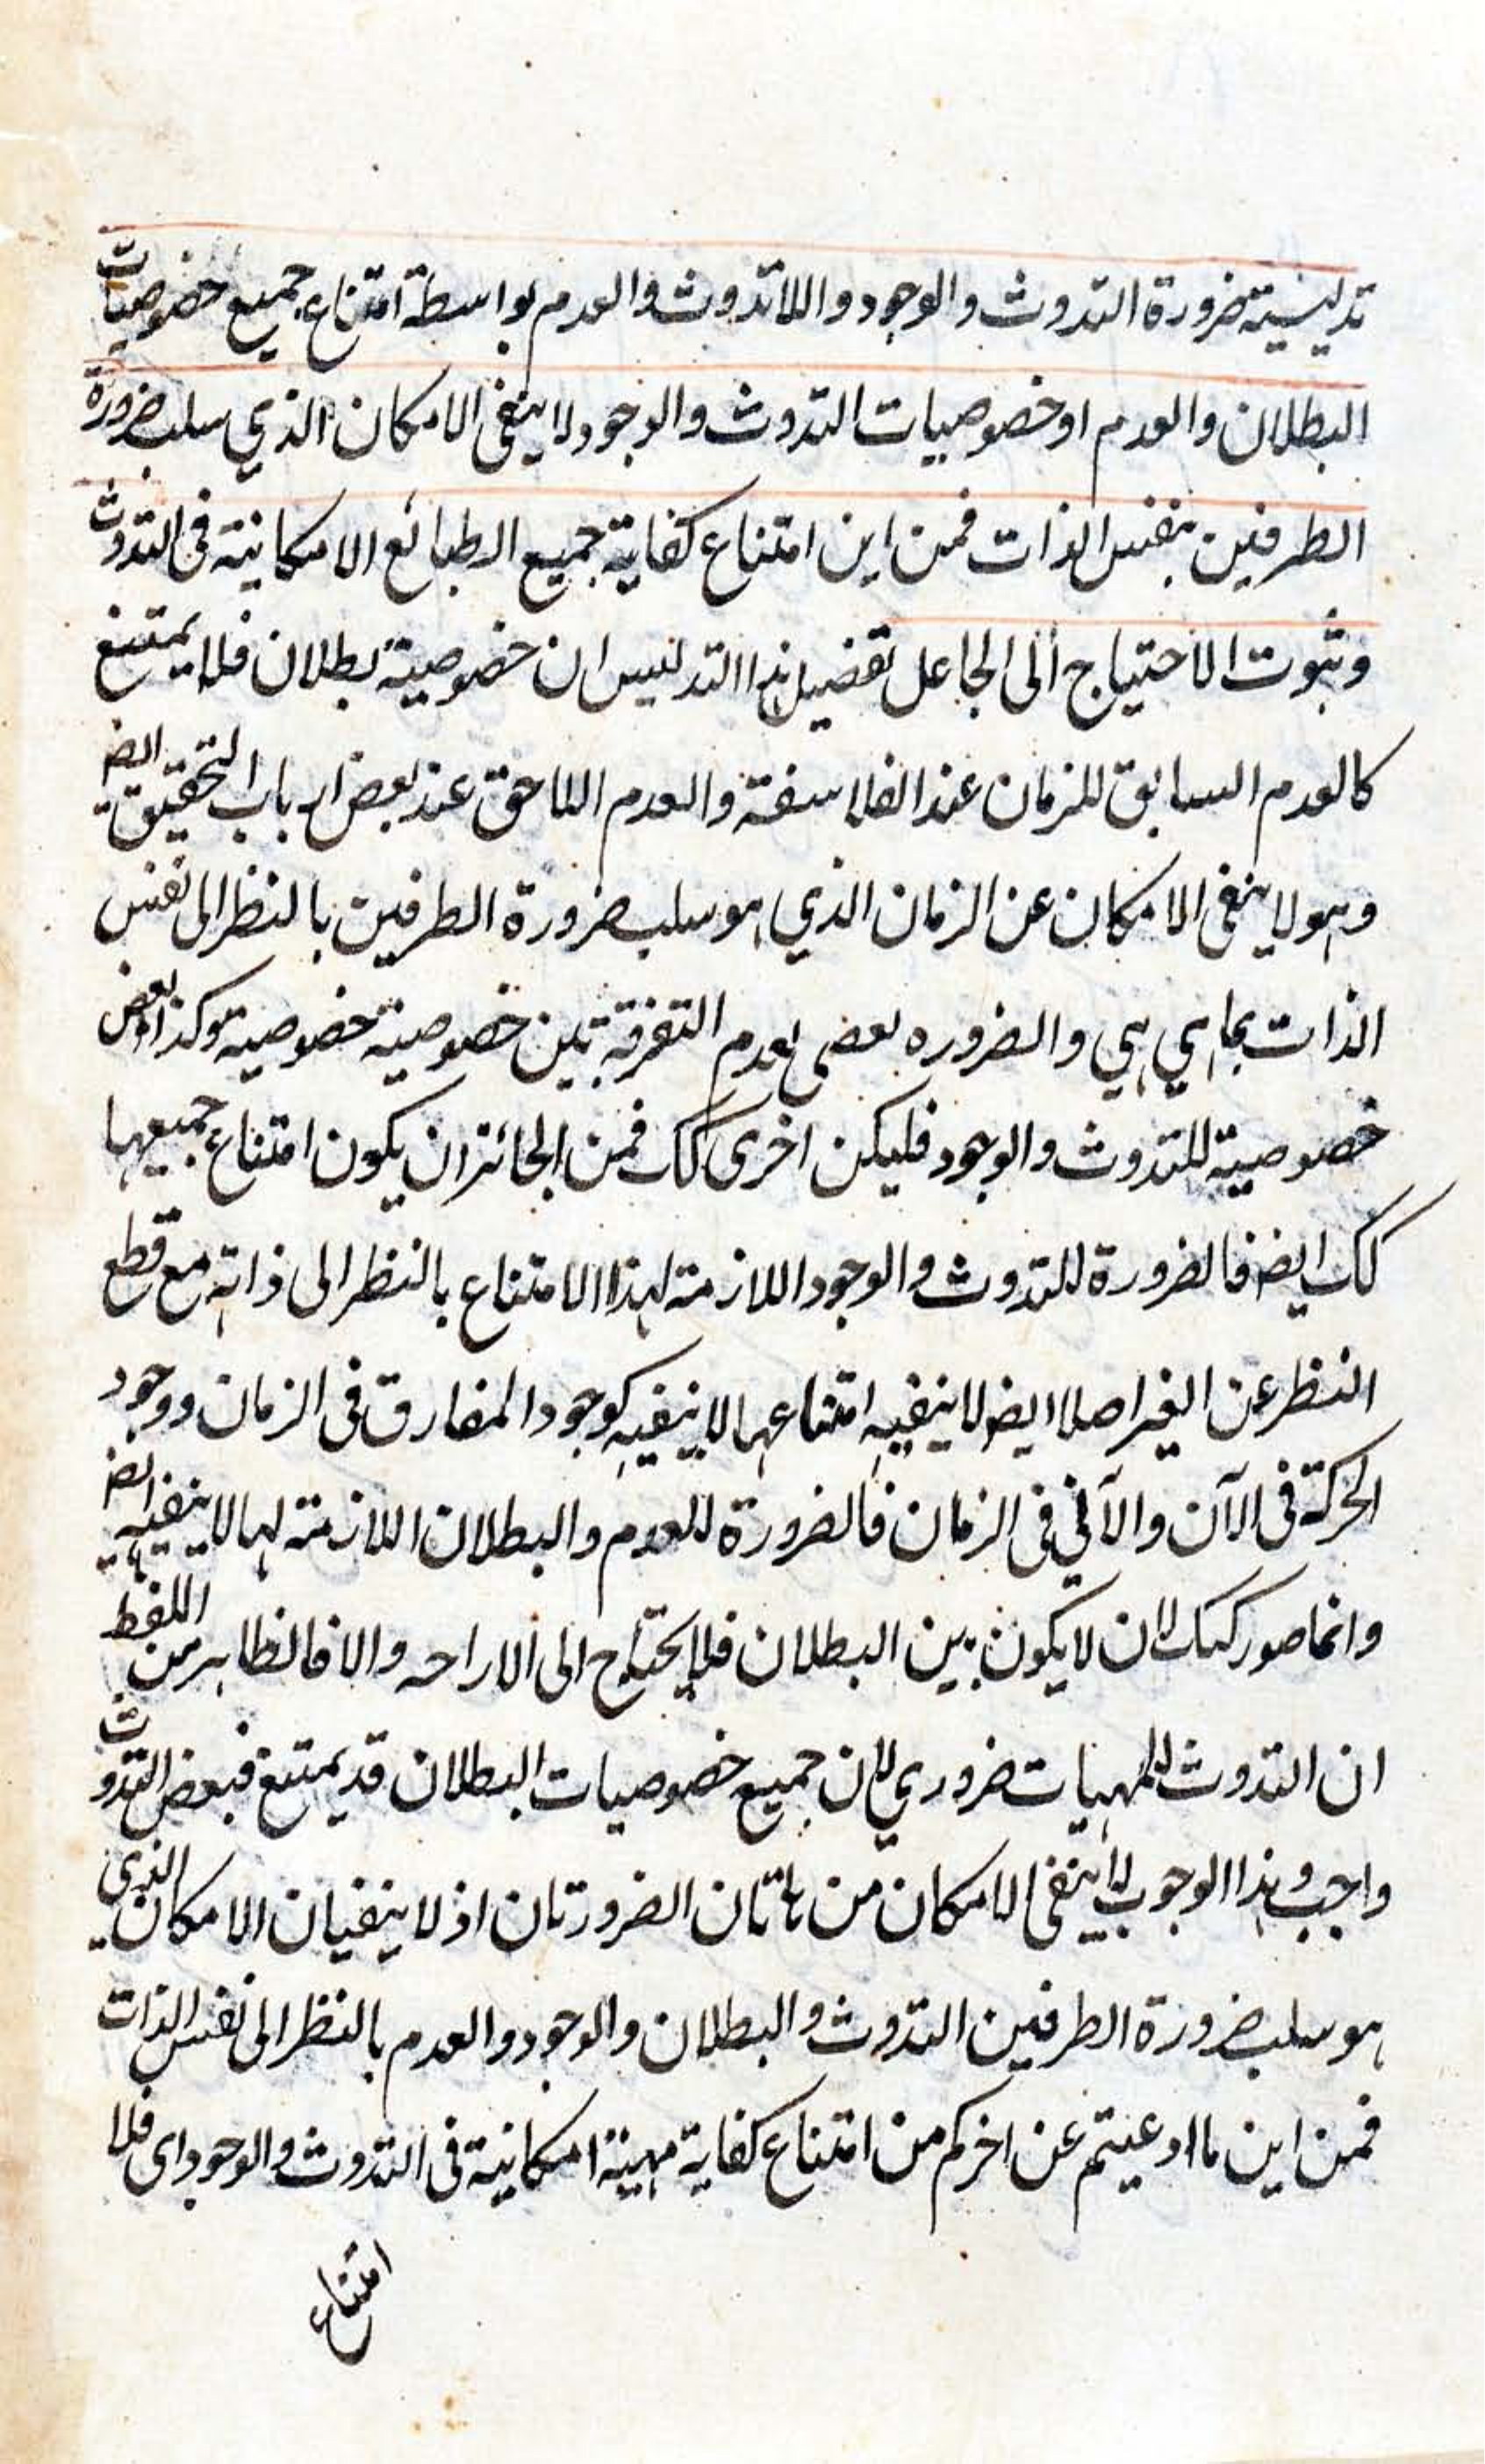 تدليسية ضرورة التدوث والوجود واللاتدوث والعدم بواسطة امتناع جميع خصوصيات
البطلان والعدم او خصوصيات التدوث والوجود لا ينفى الامكان الذي سلب ضرورة
الطرفين بنفس الذات فمن اين امتناع كفاية جميع الطبائع الامكانية فى التدوث
وثبوت الاحتياج الى الجاعل تفصيل هذا التدليس ان خصوصية بطلان فلا يمتنع
كالعدم السابق للزمان عند الفلاسفة والعدم اللاحق عند بعض ارباب التحقيق ايض
وهو لا ينفى الامكان عن الزمان الذي هو سلب ضرورة الطرفين بالنظر الى نفس
الذات بما هي هي والضروره بعدم التفرقة بين خصوصية خصوصية وكذا بعض
خصوصية للتدوث والوجود فليكن اخرى كك فمن الجائز ان يكون امتناع جميعها
كك ايض فالضرورة للتدوث والوجود اللازمة لهذا الامتناع بالنظر الى ذاته مع قطع
النظر عن الغير اصلا ايض لا ينفيه امتناعها لا ينفيه كوجود المفارق فى الزمان ووجود
الحركة فى الآن والآني فى الزمان فالضرورة للعدم والبطلان اللازمة لها لا ينفيه ايض
وانما صور كك لان لا يكون بين البطلان فلا يحتاج الى الاراحه والا فالظاهر من اللفظ
ان التدوث للمهيات ضروري لان جميع خصوصيات البطلان قد يمتنع فبعض التدوث
واجب وهذا الوجوب لا ينفى الامكان من هاتان الضرورتان اذ لا ينفيان الامكان الذي
هو سلب ضرورة الطرفين التدوث والبطلان والوجود والعدم بالنظر الى نفس الذات
فمن اين ما ادعيتم عن اخركم من امتناع كفاية مهية امكانية فى التدوث والوجود اى فلا
امتناع